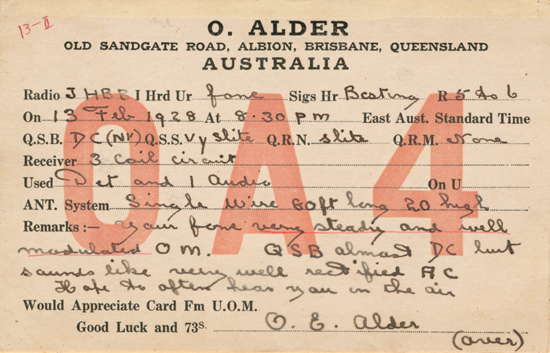 13-II
O. ALDER
OLD SANDGATE ROAD, ALBION, BRISBANE, QUEENSLAND
AUSTRALIA
OA4
Radio JHBB I Hrd Ur fone Sigs Hr Bcsting R 5 to 6
On 13 Feb 1928 At 8.30 pm East Aust. Standard Time
Q.S.B. DC (NV) Q.S.S. Vy Slite Q.R.N. slite Q.R.M. None
Receiver 3 Coil circuit
Used Det and 1 Audio On U
ANT. System Single Wire 60ft long 20 high
Remarks:— Your fone very steady and well
modulated OM. QSB almost DC but
sounds like very well rectified AC
Hope to often hear you in the air
Would Appreciate Card Fm U.O.M.
Good Luck and 73s. O. E. Alder
(over)